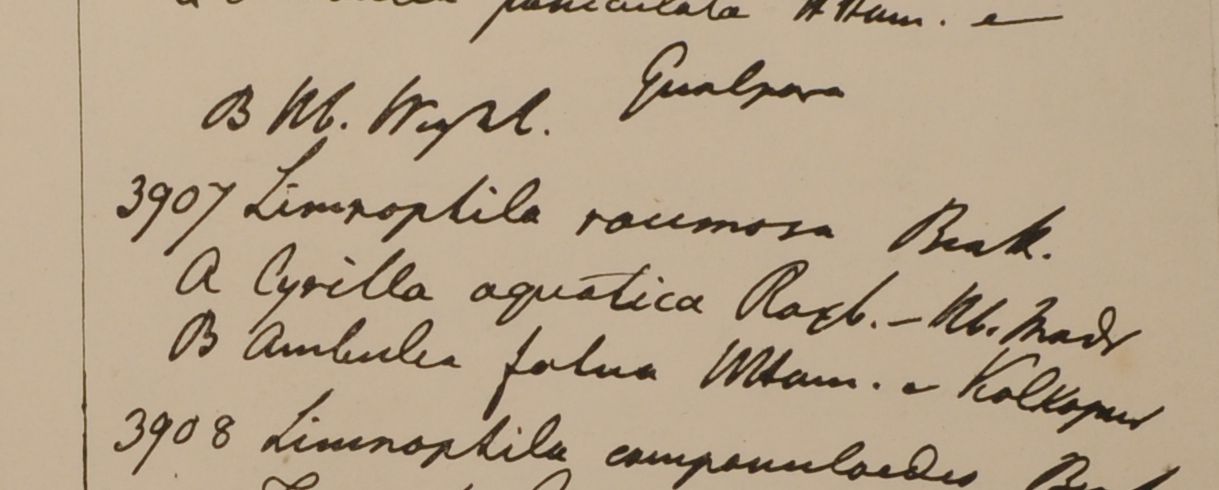 paniculata HHam. e
Gualpara
B Hb. Wight.
3907 Limnophila racemosa Benth.
A Cyrilla aquatica Roxb. – Hb. Madr
B Ambulia HHam. e Kolkapur
3908 Limnophila campanuloides Benth